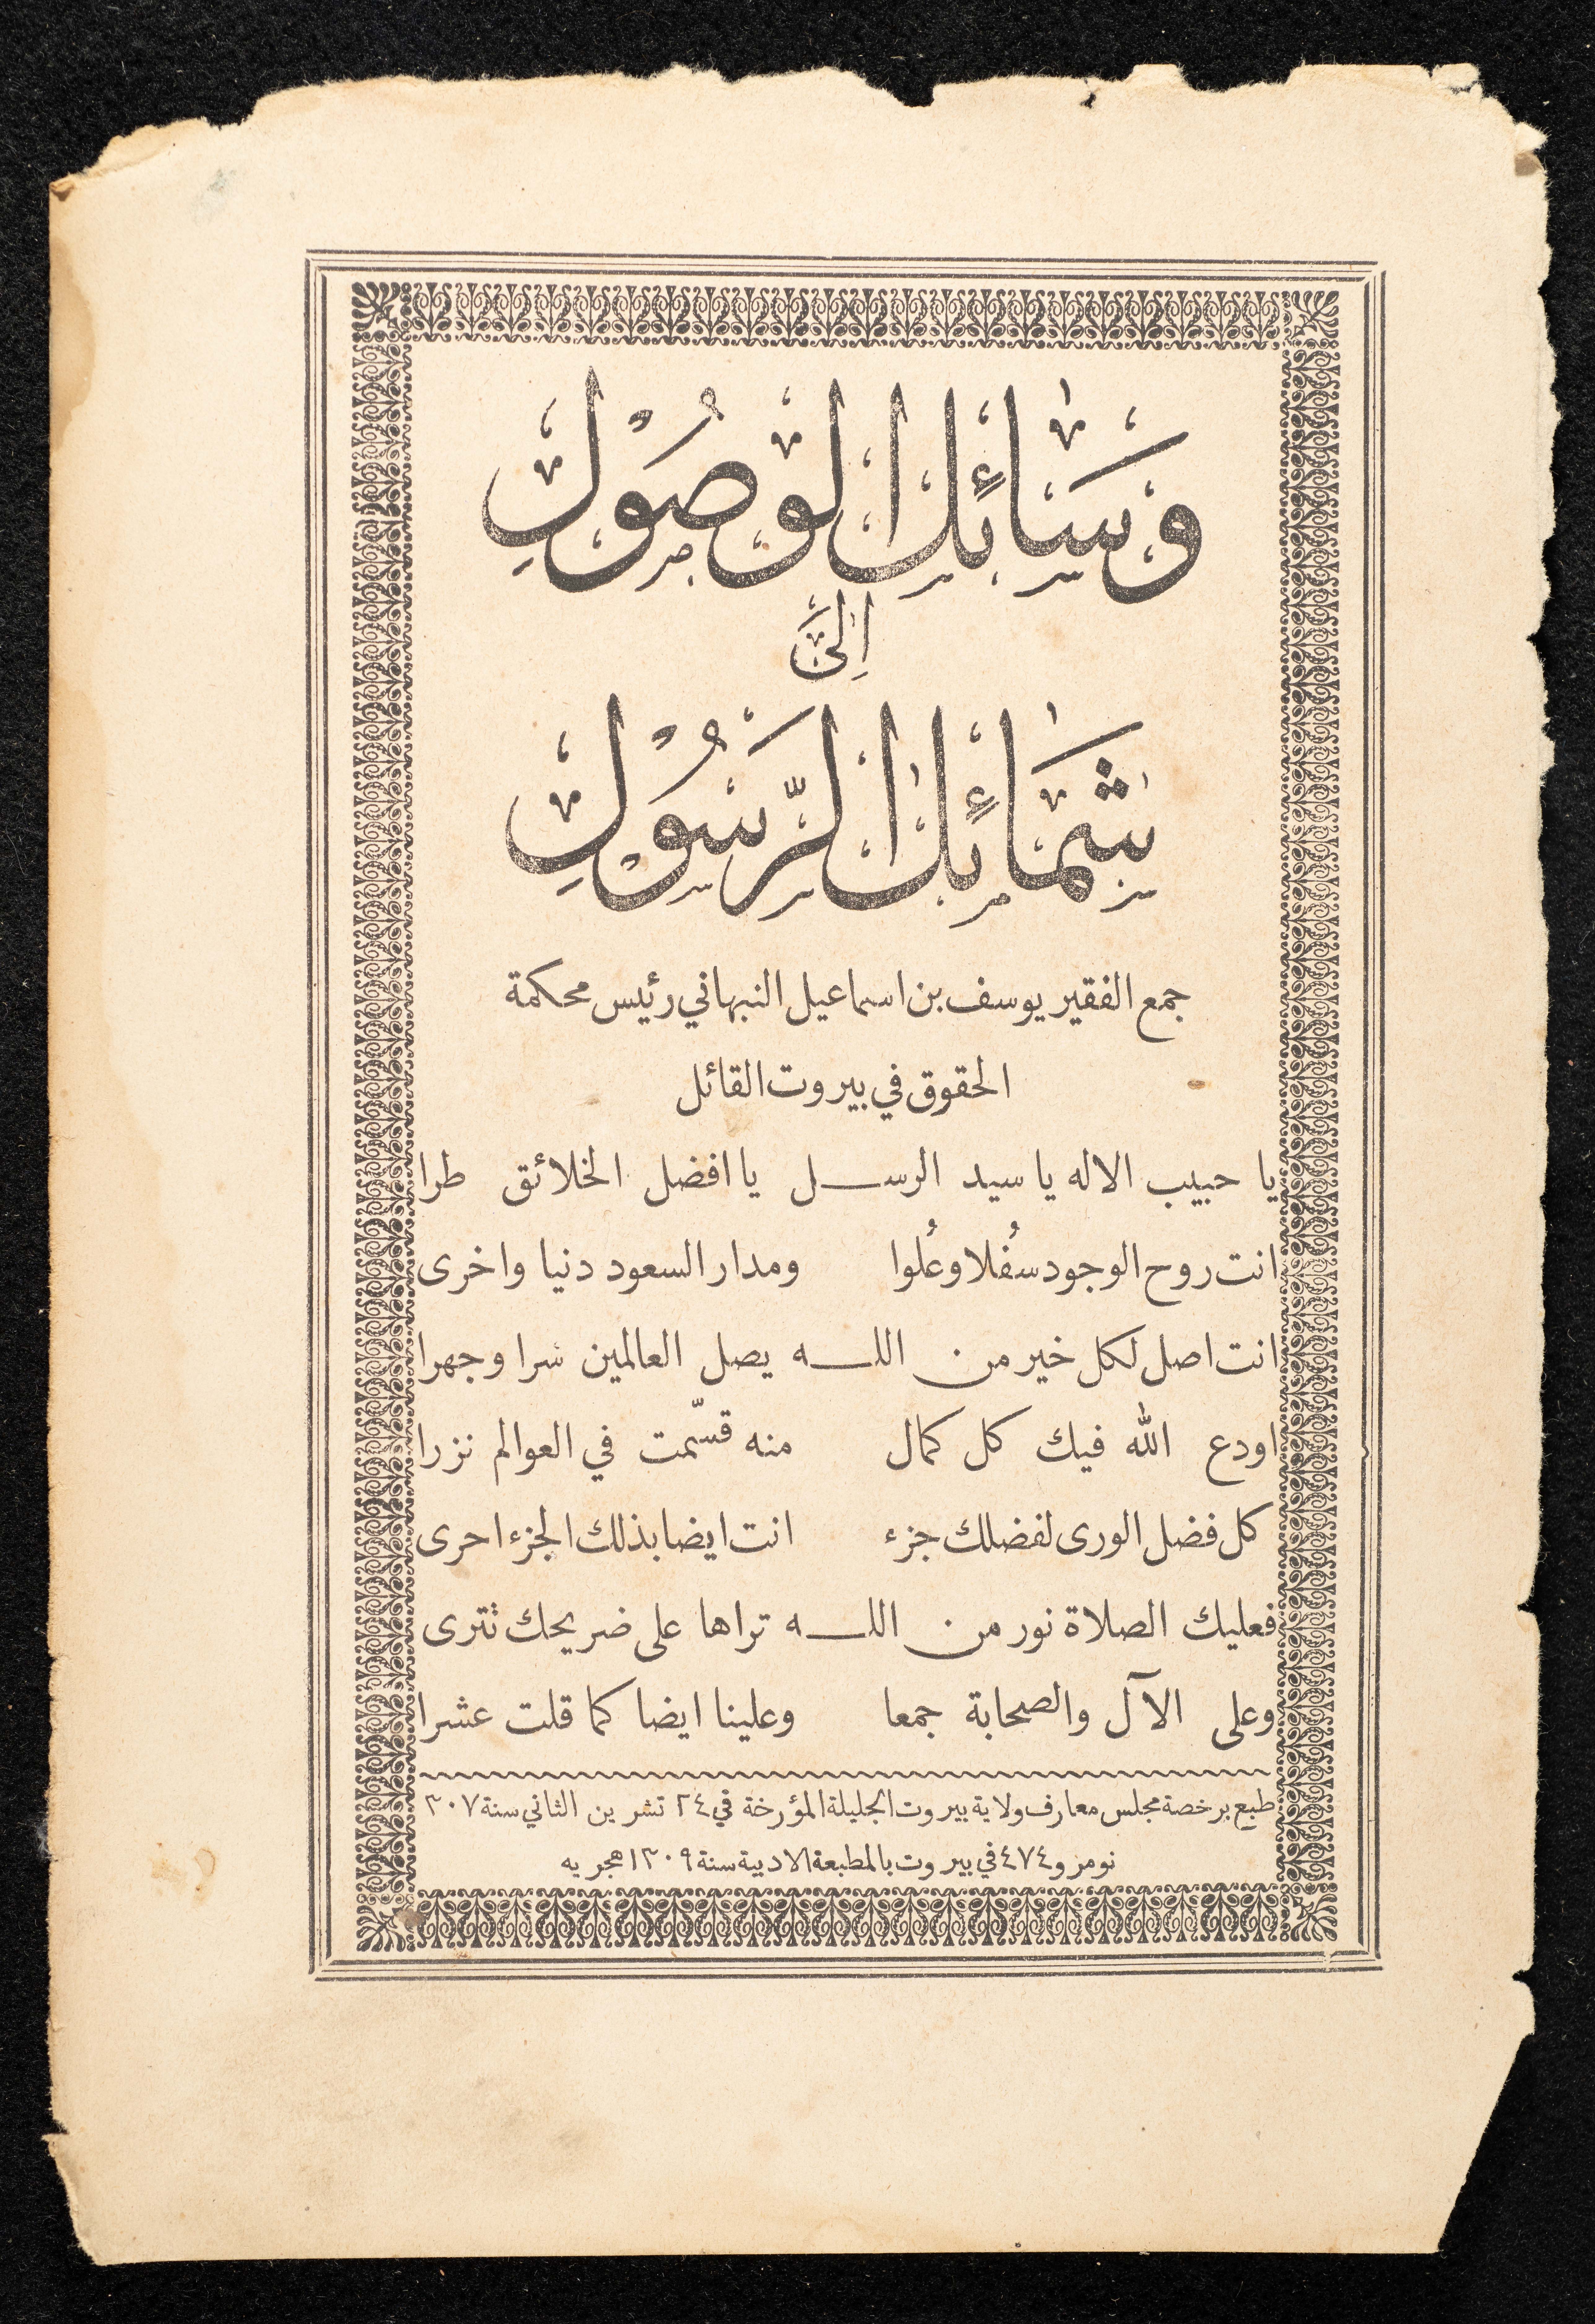 وَسَائِلُ الْوُصُوْلِ
اِلَىٰ
شَمَائِلِ الرَّسُوْلِ
جمع الفقير يوسف بن اسماعيل النبهاني رئيس محكمة
الحقوق في بيروت القائل
يا حبيب الاله يا سيد الرســل يا افضل الخلائق طرا
انت روح الوجود سُفلا وعُلوا ومدار السعود دنيا واخرى
انت اصل لكل خير من اللــه يصل العالمين سرا وجهرا
اودع الله فيك كل كمال منه قسّمت في العوالم نزرا
كل فضل الورى لفضلك جزء انت ايضا بذلك الجزء احرى
فعليك الصلاة نور من اللــه تراها على ضريحك نترى
وعلى الآل والصحابة جمعا وعلينا ايضا كما قلت عشرا
طبع برخصة مجلس معارف ولاية بيروت الجليلة المؤرخة في ٢٤ تشرين الثاني سنة ٣٠٧
نومرو ٤٧٤ في بيروت بالمطبعة الادبية سنة ١٣٠٩ هجريه